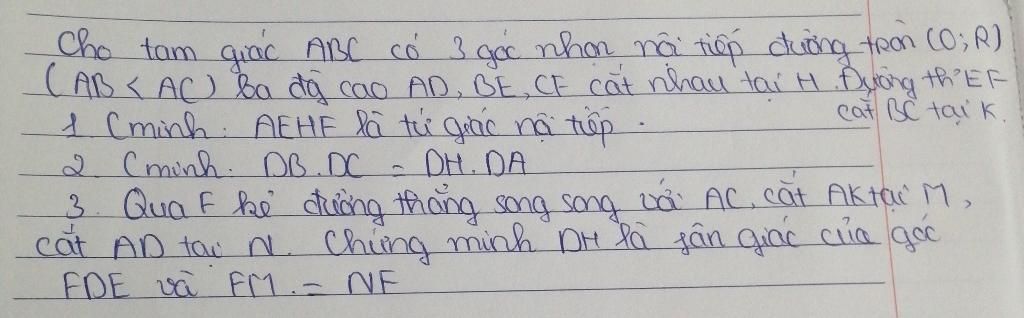 Cho tam giác ABC có 3 góc nhọn nội tiếp đường tròn (O;R)
(AB < AC) Ba độ cao AD, BE, CF cắt nhau tại H. Đường th² EF
cắt BC tại K.
1 Cminh: AEHF là tứ giác nội tiếp.
2. Cminh. DB.DC = DH.DA
3. Qua F kẻ đường thẳng song song với AC, cắt AK tại M,
cắt AD tại N. Chứng minh DH là phân giác của góc
FDE và FM. = NF